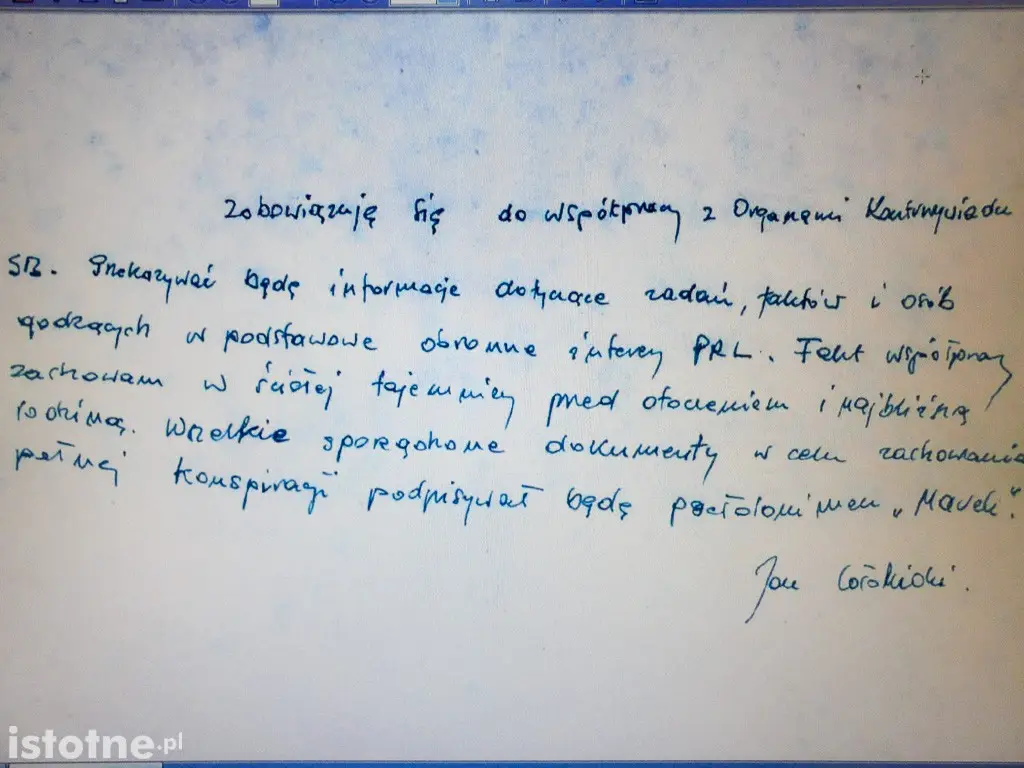 Zobowiązuję się do współpracy z Organami Kontrwywiadu
SB. Przekazywać będę informacje dotyczące zadań, faktów i osób
godzących w podstawowe obronne interesy PRL. Fakt współpracy
zachowam w ścisłej tajemnicy przed otoczeniem i najbliższą
rodziną. Wszelkie sporządzone dokumenty w celu zachowania
pełnej konspiracji podpisywał będę pseudonimem „Marek".
Jan
istotne.pl